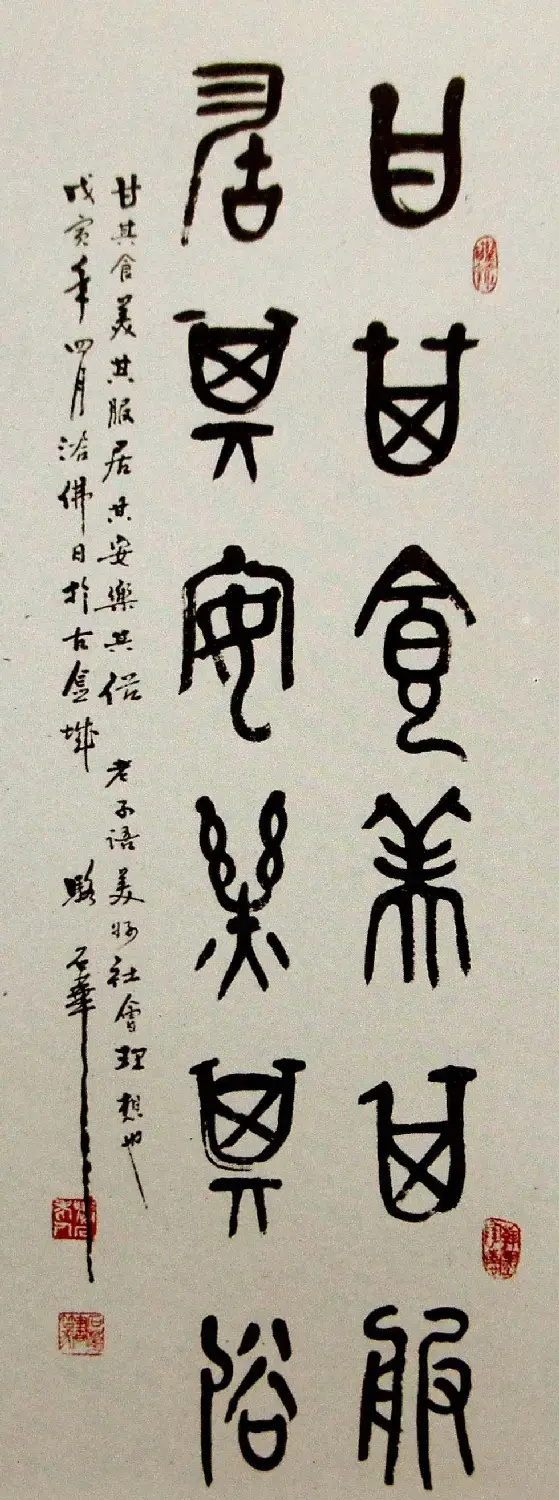 甘其食美其服
居其安樂其俗
甘其食美其服居其安樂其俗 老子語美好社會理想也
戊寅年四月浴佛日於古金城 駱石華